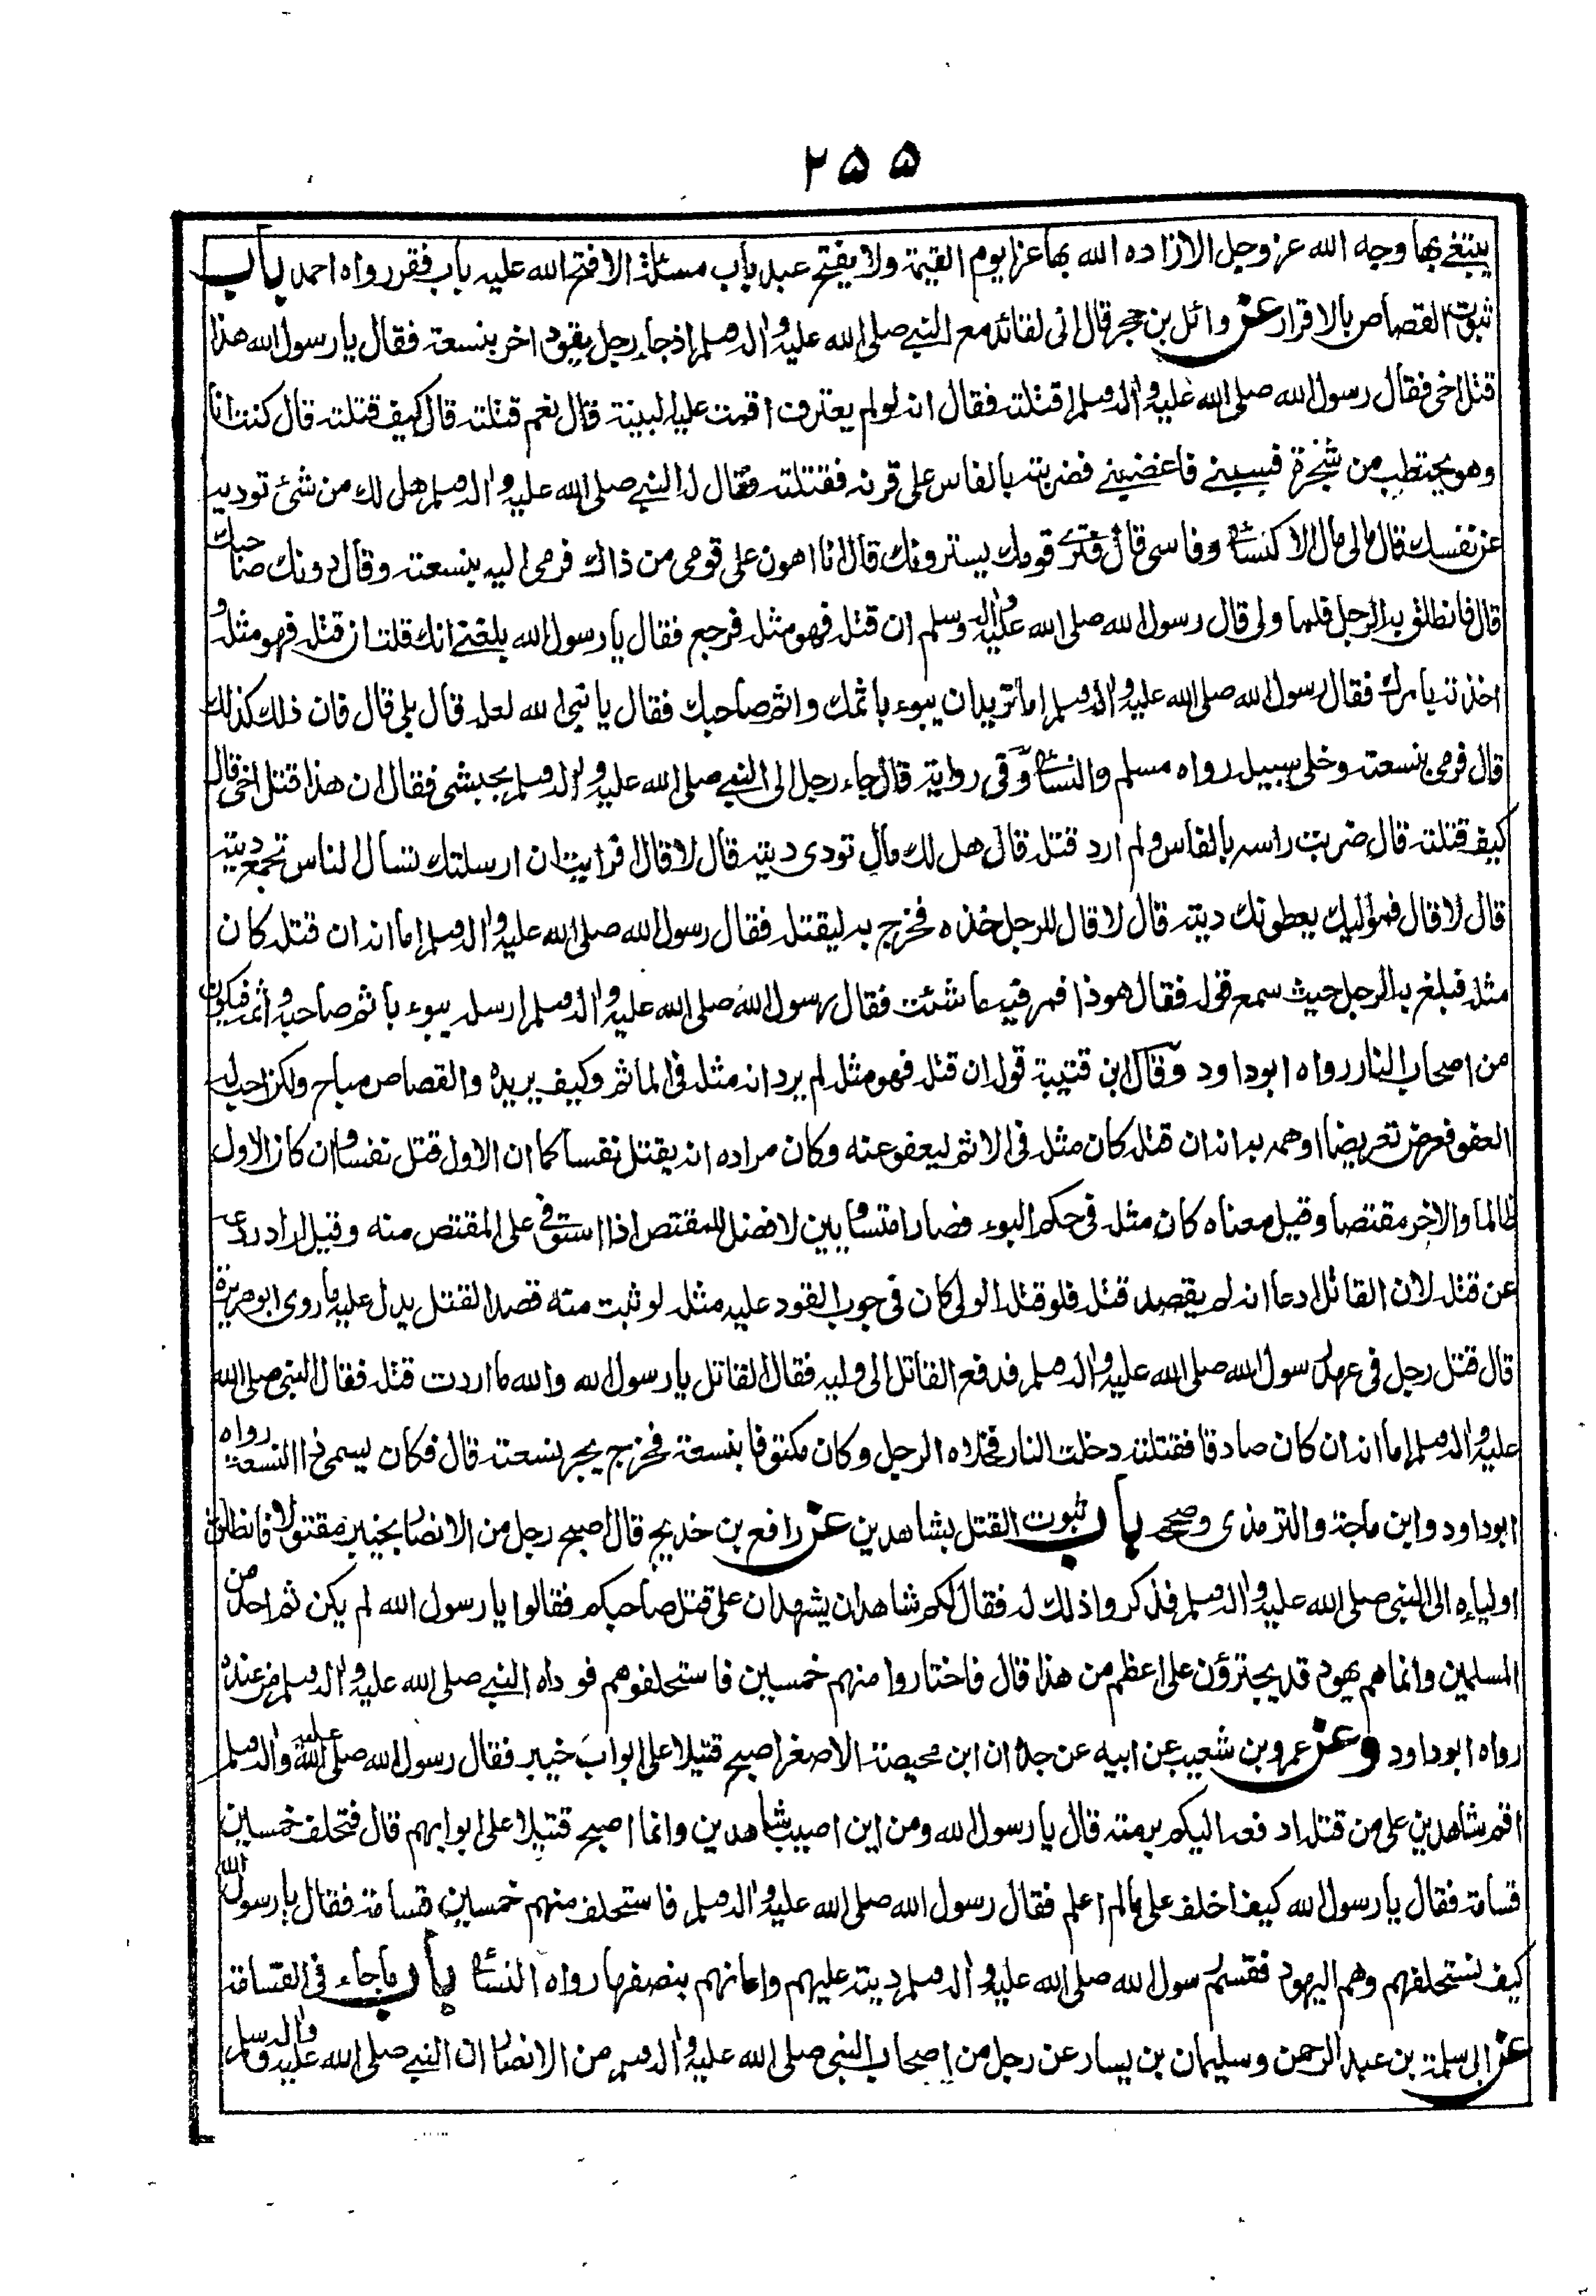 ٢٥٥
يبتغي بها وجه الله عز وجل الا زاده الله بها عزا يوم القيمة ولا يفتح عبد باب مسئلة الا فتح الله عليه باب فقر رواه احمد باب
ثبوت القصاص بالاقرار عن وائل بن حجر قال انى لقاعد مع النبي صلى الله عليه واله وسلم اذ جاء رجل يقود اخر بنسعة فقال يا رسول الله هذا
قتل اخى فقال رسول الله صلى الله عليه واله وسلم اقتلته فقال انه لو لم يعترف اقمت عليه البينة قال نعم قتلته قال كيف قتلته قال كنت انا
وهو يحتطب من شجرة فسبني فاغضبني فضربته بالفاس على قرنه فقتلته فقال له النبي صلى الله عليه واله وسلم هل لك من شئ توديه
عن نفسك قال مالى مال الا كسائى وفاسى قال فترى قومك يسترونك قال انا اهون على قومى من ذاك فرمى اليه بنسعته وقال دونك صاحبك
قال فانطلق به الرجل فلما ولى قال رسول الله صلى الله عليه واله وسلم ان قتله فهو مثله فرجع فقال يا رسول الله بلغني انك قلت ان قتله فهو مثله و
اخذته بامرك فقال رسول الله صلى الله عليه واله وسلم اما تريد ان يبوء باثمك واثم صاحبك فقال يا نبى الله لعله قال بلى قال فان ذلك كذلك
قال فرمى بنسعته وخلى سبيله رواه مسلم والنسائى وفى رواية قال جاء رجل الى النبي صلى الله عليه واله وسلم بحبشى فقال ان هذا قتل اخى قال
كيف قتلته قال ضربت راسه بالفاس ولم ارد قتله قال هل لك مال تودى ديته قال لا قال افرايت ان ارسلتك تسال الناس تجمع ديته
قال لا قال فمواليك يعطونك ديته قال لا قال للرجل خذه فخرج به ليقتله فقال رسول الله صلى الله عليه واله وسلم اما انه ان قتله كان
مثله فبلغ به الرجل حيث سمع قوله فقال هو ذا فمر فيه ما شئت فقال رسول الله صلى الله عليه واله وسلم ارسله يبوء باثم صاحبه واثمه فيكون
من اصحاب النار رواه ابوداود وقال ابن قتيبة قوله ان قتله فهو مثله لم يرد انه مثله فى الماثم وكيف يريده والقصاص مباح ولكن احب له
العفو فعرض تعريضا اوهمه به انه ان قتله كان مثله فى الاثم ليعفو عنه وكان مراده انه يقتل نفسا كما ان الاول قتل نفسا وان كان الاول
ظالما والاخر مقتصا وقيل معناه كان مثله فى حكم البوء فصارا متساويين لا فضل للمقتص اذا استوفى على المقتص منه وقيل اراد ردعه
عن قتله لان القاتل ادعا انه لم يقصد قتله فلو قتله الولى كان فى وجوب القود عليه مثله لو ثبت منه قصد القتل يدل عليه ما روى ابو هريرة
قال قتل رجل فى عهد رسول الله صلى الله عليه واله وسلم فدفع القاتل الى وليه فقال القاتل يا رسول الله والله ما اردت قتله فقال النبى صلى الله
عليه واله وسلم اما انه ان كان صادقا فقتلته دخلت النار فخلاه الرجل وكان مكتوفا بنسعة فخرج يجر نسعته قال فكان يسمى ذا النسعة رواه
ابوداود وابن ماجة والترمذى وصححه باب ثبوت القتل بشاهدين عن رافع بن خديج قال اصبح رجل من الانصار بخيبر مقتولا فانطلق
اولياءه الى النبى صلى الله عليه واله وسلم فذكروا ذلك له فقال لكم شاهدان يشهدان على قتل صاحبكم فقالوا يا رسول الله لم يكن ثم احد من
المسلمين وانما هم يهود قد يجترؤن على اعظم من هذا قال فاختاروا منهم خمسين فاستحلفوهم فوداه النبي صلى الله عليه واله وسلم من عنده
رواه ابوداود وعن عمرو بن شعيب عن ابيه عن جده ان ابن محيصة الاصغر اصبح قتيلا على ابواب خيبر فقال رسول الله صلى الله عليه واله وسلم
اقم شاهدين على من قتله ادفعه اليكم برمته قال يا رسول الله ومن اين اصيب شاهدين وانما اصبح قتيلا على ابوابهم قال فتحلف خمسين
قسامة فقال يا رسول الله كيف احلف على مالم اعلم فقال رسول الله صلى الله عليه واله وسلم فاستحلف منهم خمسين قسامة فقال يا رسول الله
كيف نستحلفهم وهم اليهود فقسم رسول الله صلى الله عليه واله وسلم ديته عليهم واعانهم بنصفها رواه النسائى باب ما جاء فى القسامة
عن ابى سلمة بن عبد الرحمن وسليمان بن يسار عن رجل من اصحاب النبى صلى الله عليه واله وسلم من الانصار ان النبي صلى الله عليه واله وسلم